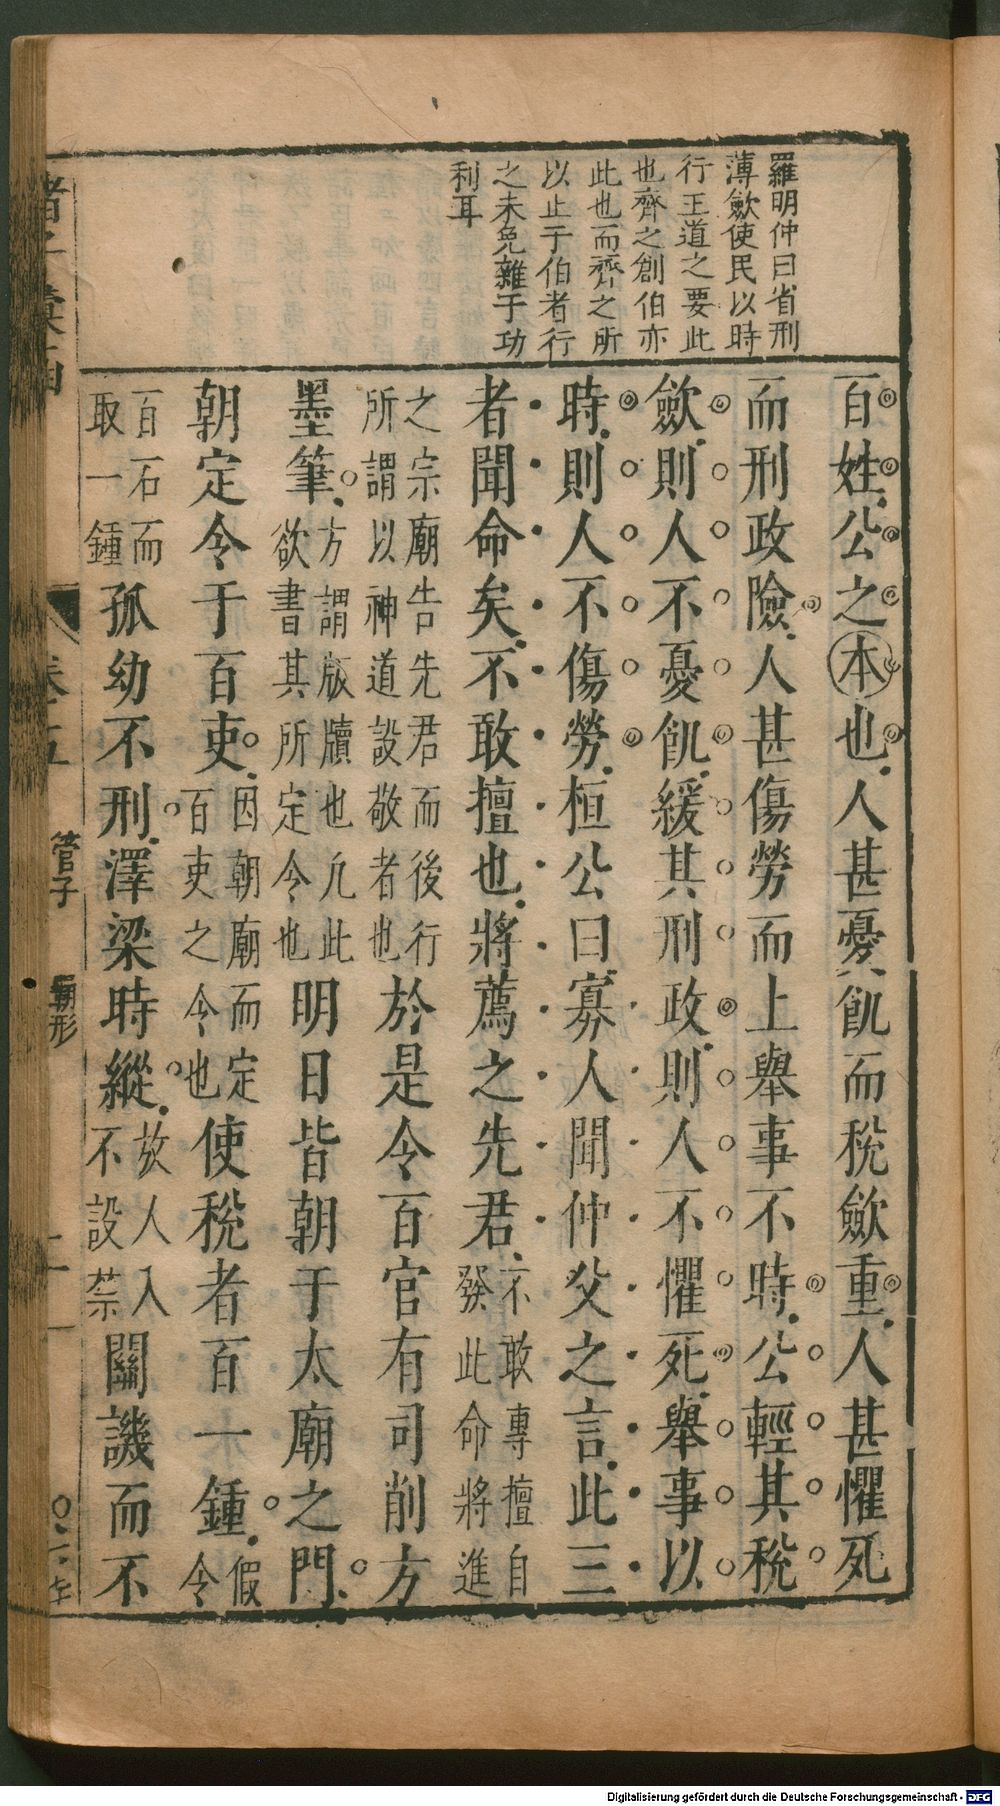 羅明仲曰省刑
薄斂使民以時
行王道之要此
也齊之創伯亦
此也而齊之所
以止于伯者行
之未免雜于功
利耳
百姓公之本也人甚憂飢而稅斂重人甚懼死
而刑政險人甚傷勞而上舉事不時公輕其稅
斂則人不憂飢緩其刑政則人不懼死舉事以
時則人不傷勞桓公曰寡人聞仲父之言此三
者聞命矣不敢擅也將薦之先君不敢專擅自發此命將進
之宗廟告先君而後行所謂以神道設敬者也於是令百官有司削方
墨筆方謂版牘也凡此欲書其所定令也明日皆朝于太廟之門
朝定令于百吏因朝廟而定百吏之令也使稅者百一鍾假令
百石而取一鍾孤幼不刑澤梁時縱放人入不設禁關譏而不
管子
霸形
Digitalisierung gefördert durch die Deutsche Forschungsgemeinschaft - DFG